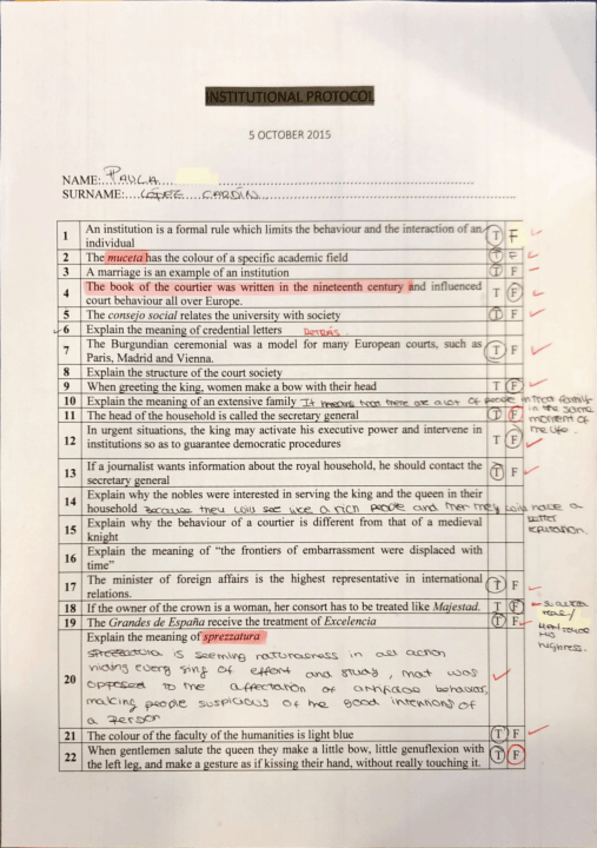 INSTITUTIONAL PROTOCOL
5 OCTOBER 2015
NAME: PAULA
SURNAME: LÓPEZ CARDÍN
1 An institution is a formal rule which limits the behaviour and the interaction of an T F
individual
2 The muceta has the colour of a specific academic field T F
3 A marriage is an example of an institution T F
4 The book of the courtier was written in the nineteenth century and influenced T F
court behaviour all over Europe.
5 The consejo social relates the university with society T F
6 Explain the meaning of credential letters DETRÁS.
7 The Burgundian ceremonial was a model for many European courts, such as T F
Paris, Madrid and Vienna.
8 Explain the structure of the court society
9 When greeting the king, women make a bow with their head T F
10 Explain the meaning of an extensive family It means that there are a lot of people in that family
in the same
moment of
the life.
11 The head of the household is called the secretary general T F
12 In urgent situations, the king may activate his executive power and intervene in T F
institutions so as to guarantee democratic procedures
13 If a journalist wants information about the royal household, he should contact the T F
secretary general
14 Explain why the nobles were interested in serving the king and the queen in their
household Because they see like a rich people and then they have a
better
reputation.
15 Explain why the behaviour of a courtier is different from that of a medieval
knight
16 Explain the meaning of "the frontiers of embarrassment were displaced with
time"
17 The minister of foreign affairs is the highest representative in international T F
relations.
18 If the owner of the crown is a woman, her consort has to be treated like Majestad. T F
his
highness.
19 The Grandes de España receive the treatment of Excelencia T F
20 Explain the meaning of sprezzatura
sprezzatura is seeming naturalness in all action
hiding every sing of effort and study, that was
opposed to the affectation of behavior,
making people suspicious of the good intentions of
a person
21 The colour of the faculty of the humanities is light blue T F
22 When gentlemen salute the queen they make a little bow, little genuflexion with T F
the left leg, and make a gesture as if kissing their hand, without really touching it.